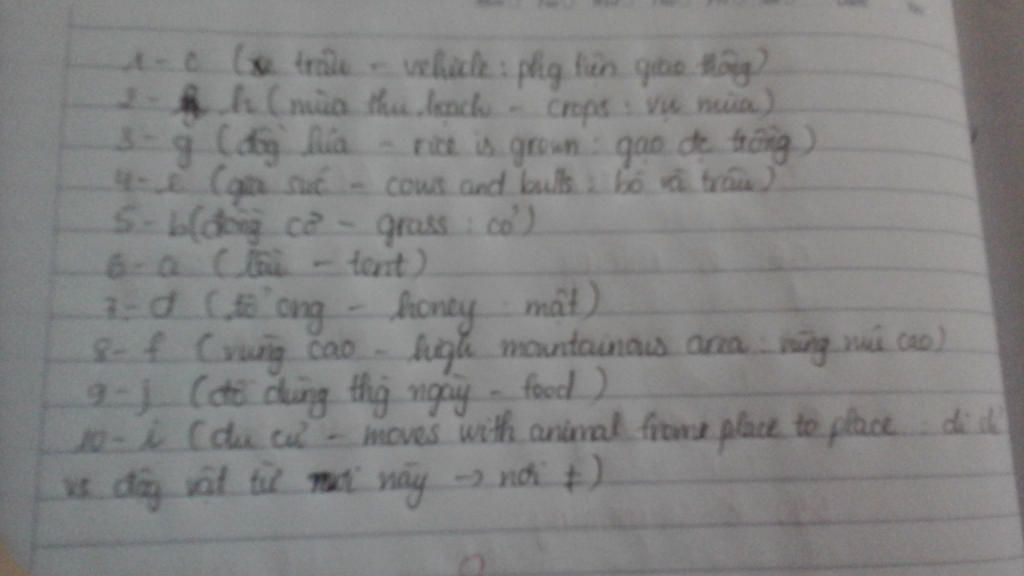 1 - c (xe trâu - vehicle : phg tiện giao thông)
2 - h (mùa thu hoạch - crops : vụ mùa)
3 - g (đồg lúa - rice is grown : gạo đc trồng)
4 - e (gia súc - cows and bulls : bò và trâu)
5 - b (đồng cỏ - grass : cỏ)
6 - a (lều - tent)
7 - d (tổ ong - honey : mật)
8 - f (vùng cao - high mountainous area : vùng núi cao)
9 - j (đồ dùng thg ngày - food)
10 - i (du cư - moves with animal from place to place : di
vs độg vật từ nơi này → nơi ≠)